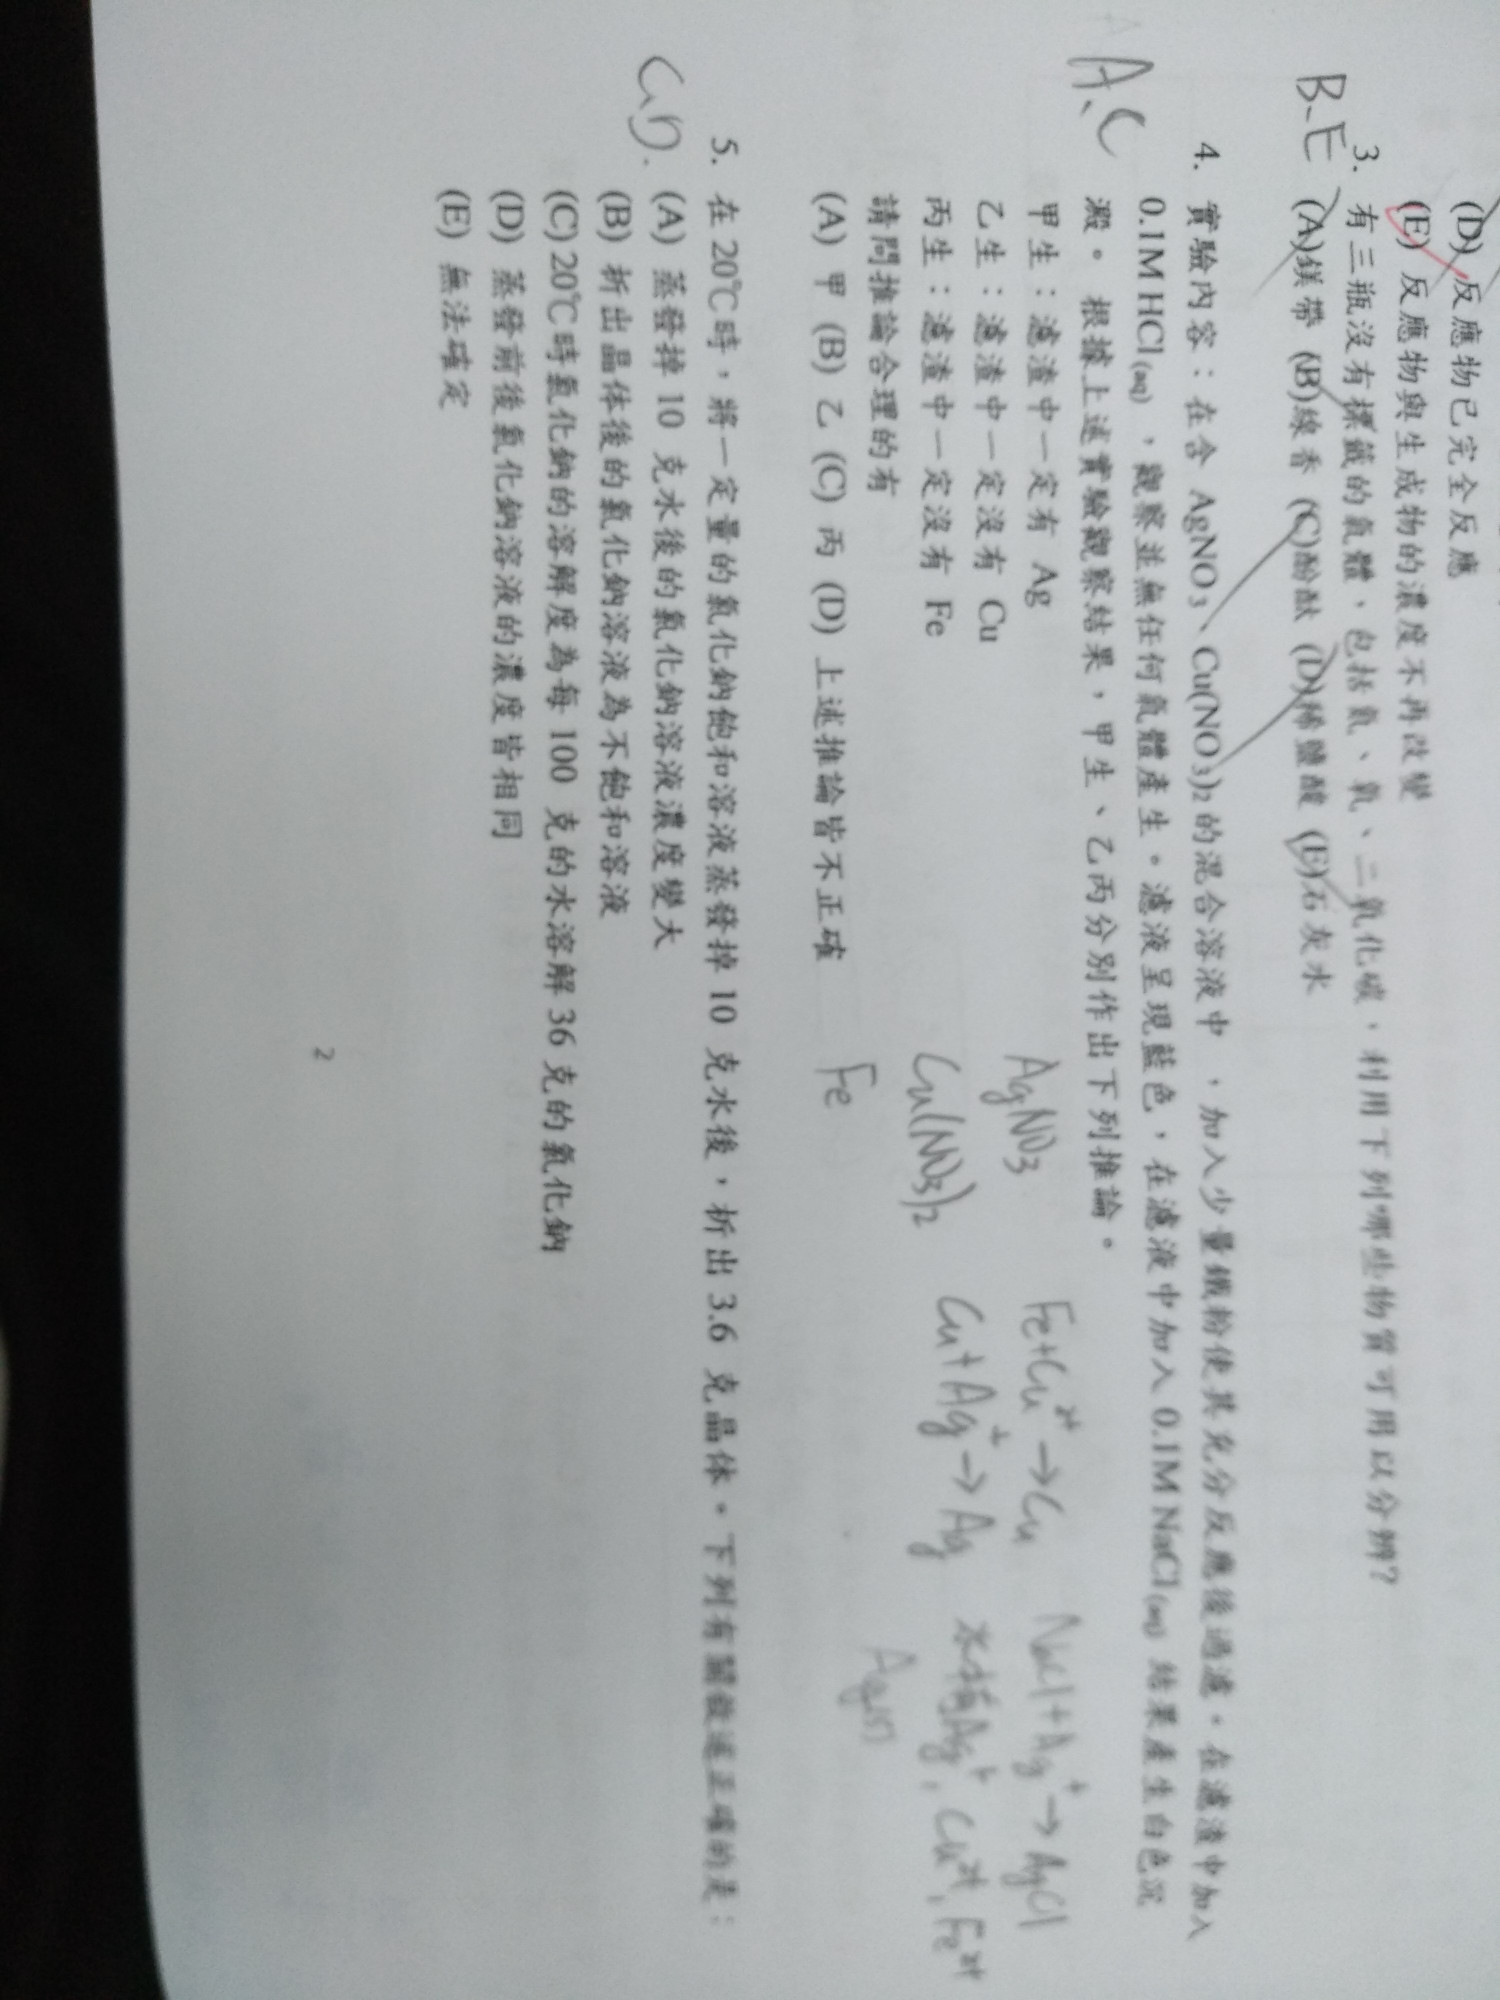 (D) 反應物已完全反應
(E) 反應物與生成物的濃度不再改變
3. 有三瓶沒有標籤的氣體，包括氫、氧、二氧化碳，利用下列哪些物質可用以分辨?
B、E
(A)鎂帶 (B)線香 (C)酚酞 (D)稀鹽酸 (E)石灰水
4. 實驗內容：在含 AgNO3、Cu(NO3)2 的混合溶液中，加入少量鐵粉使其充分反應後過濾。在濾渣中加入
0.1M HCl(aq)，觀察並無任何氣體產生。濾液呈現藍色，在濾液中加入 0.1M NaCl(aq) 結果產生白色沉
A、C
澱。 根據上述實驗觀察結果，甲生、乙丙分別作出下列推論。
甲生：濾渣中一定有 Ag
乙生：濾渣中一定沒有 Cu
丙生：濾渣中一定沒有 Fe
請問推論合理的有
(A) 甲 (B) 乙 (C) 丙 (D) 上述推論皆不正確
AgNO3
Cu(NO3)2
Fe
Fe+Cu2+→Cu
Cu+Ag+→Ag
NaCl+Ag+→AgCl
Ag+, Cu2+, Fe2+
Ag(s)
5. 在 20℃時，將一定量的氯化鈉飽和溶液蒸發掉 10 克水後，析出 3.6 克晶體。下列有關敘述正確的是：
C、D
(A) 蒸發掉 10 克水後的氯化鈉溶液濃度變大
(B) 析出晶体後的氯化鈉溶液為不飽和溶液
(C) 20℃時氯化鈉的溶解度為每 100 克的水溶解 36 克的氯化鈉
(D) 蒸發前後氯化鈉溶液的濃度皆相同
(E) 無法確定
2